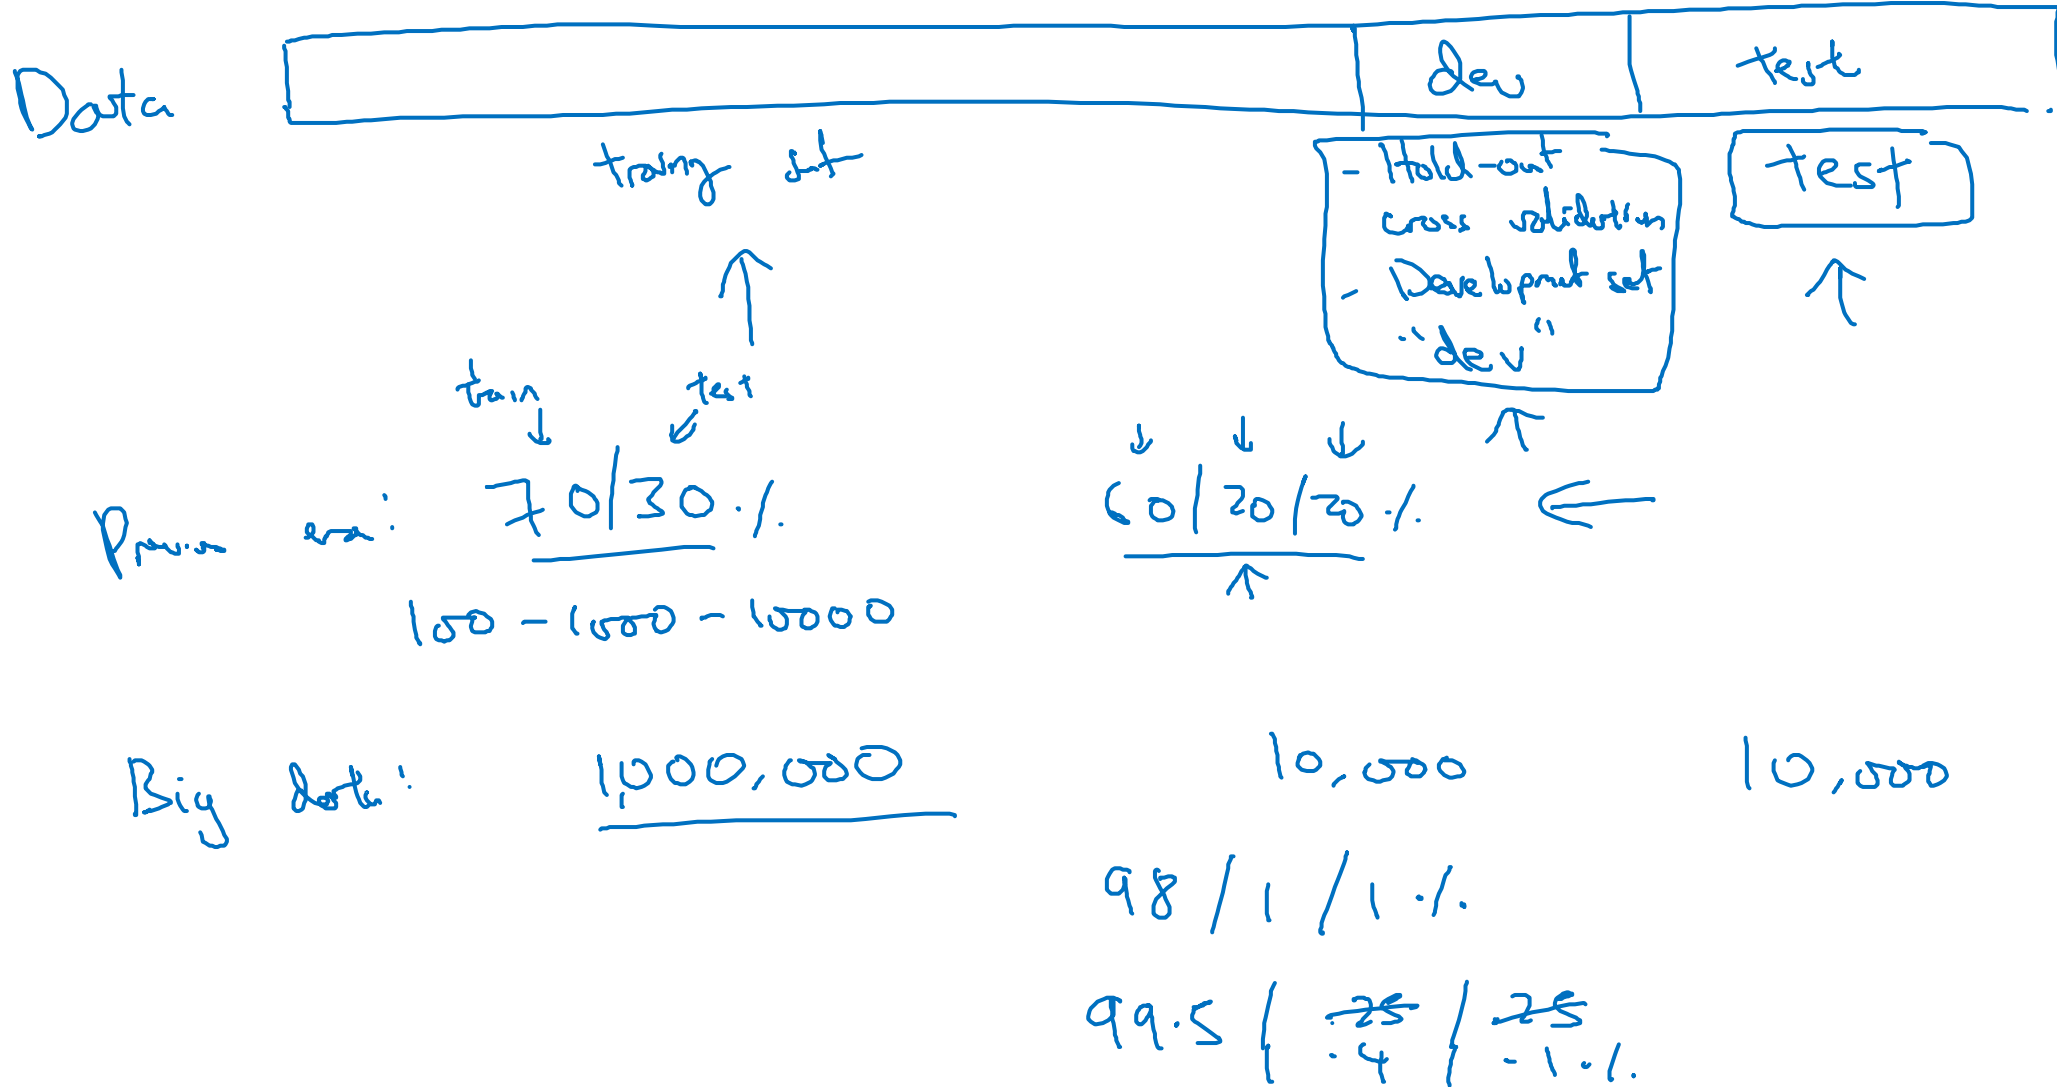 Data
dev
test
training set
- Hold-out
cross validation
- Development set
"dev"
test
train
test
Previous era:
70/30 %
60/20/20 %
100 - 1000 - 10000
Big data:
1,000,000
10,000
10,000
98 / 1 / 1 %
99.5 / .25 / .25
.4 .1 %